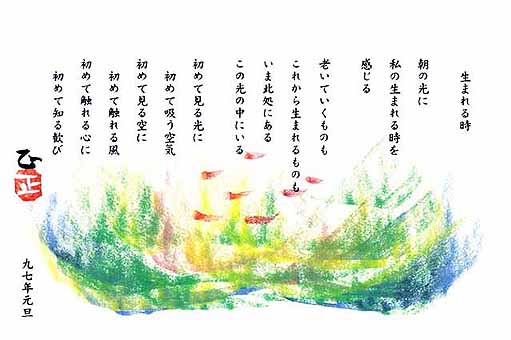 生まれる時
朝の光に
私の生まれる時を
感じる
老いていくものも
これから生まれるものも
いま此処にある
この光の中にいる
初めて見る光に
初めて吸う空気
初めて見る空に
初めて触れる風
初めて触れる心に
初めて知る歓び
ひ
正
九七年元旦